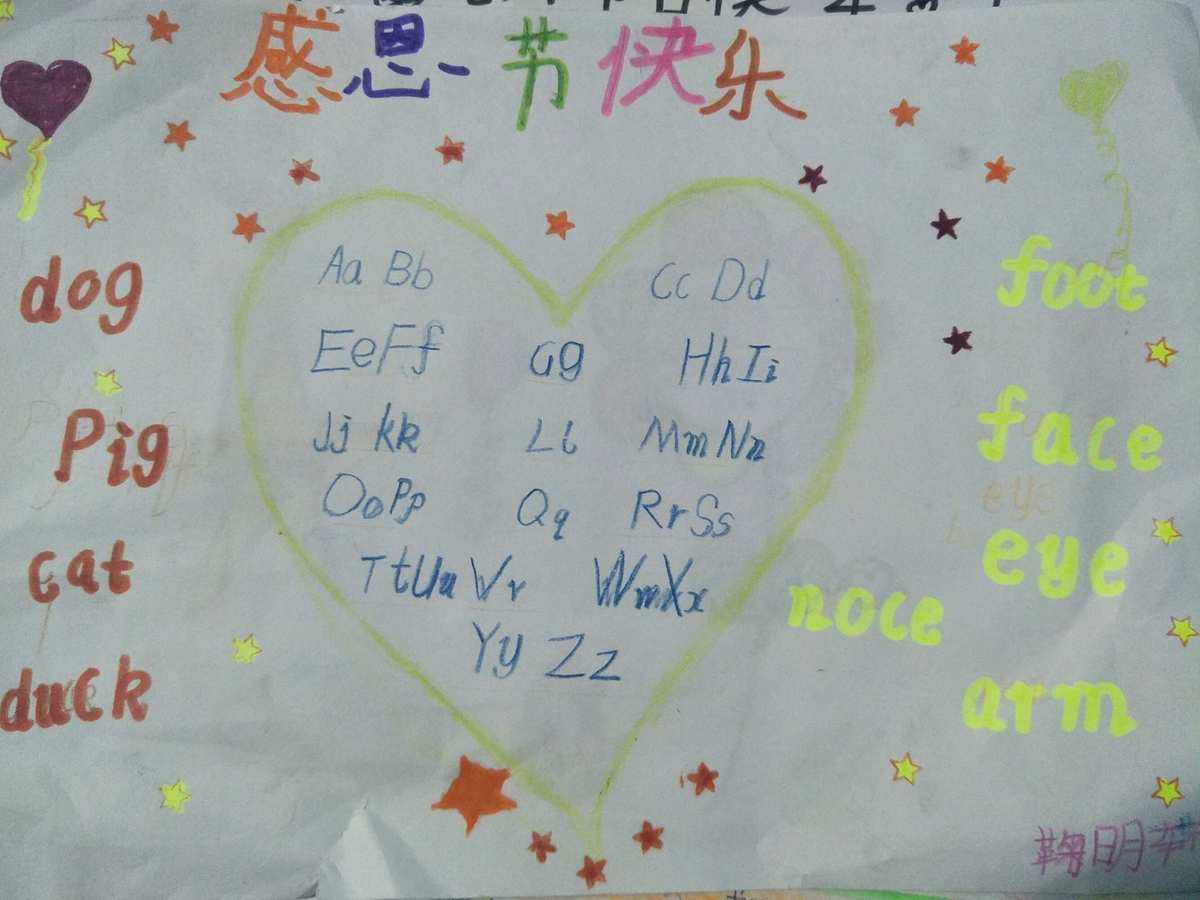 感恩节快乐
dog
foot
Aa Bb Cc Dd
EeFf Gg HhIi
Jj kk Ll MmNn
OoPp Qq RrSs
TtUu Vv WmXx
Yy Zz
Pig
cat
duck
face
eye
noce
arm